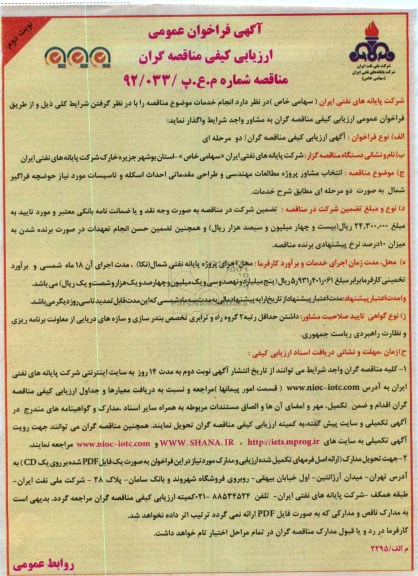 نوبت دوم
آگهی فراخوان عمومی
ارزیابی کیفی مناقصه گران
مناقصه شماره م.ع.پ /۹۲/۰۳۳
شرکت ملی نفت ایران
شرکت پایانه های نفتی ایران
(سهامی خاص)
شرکت پایانه های نفتی ایران ( سهامی خاص )در نظر دارد انجام خدمات موضوع مناقصه را با در نظر گرفتن شرایط کلی ذیل و از طریق
فراخوان عمومی ارزیابی کیفی مناقصه گران به مشاور واجد شرایط واگذار نماید:
الف) نوع فراخوان : آگهی ارزیابی کیفی مناقصه گران/ دو مرحله ای
ب)نام و نشانی دستگاه مناقصه گزار :شرکت پایانه های نفتی ایران «سهامی خاص» -استان بوشهر جزیره خارک شرکت پایانه های نفتی ایران
ج) موضوع مناقصه : انتخاب مشاور پروژه مطالعات مهندسی و طراحی مقدماتی احداث اسکله و تاسیسات مورد نیاز حوضچه فراگیر
شمال به صورت دو مرحله ای مطابق شرح خدمات.
د) نوع و مبلغ تضمین شرکت در مناقصه : تضمین شرکت در مناقصه به صورت وجه نقد و یا ضمانت نامه بانکی معتبر و مورد تایید به
مبلغ ۲۴,۳۰۰,۰۰۰ ریال(بیست و چهار میلیون و سیصد هزار ریال) و همچنین تضمین حسن انجام تعهدات در صورت برنده شدن به
میزان ۱۰درصد نرخ پیشنهادی برنده مناقصه.
ه) محل، مدت زمان اجرای خدمات و برآورد کارفرما : محل اجرای پروژه پایانه نفتی شمال(نکا) ، مدت اجرای آن ۱۸ ماه شمسی و برآورد
تخمینی کارفرما برابر مبلغ ۵,۹۳۱,۴۰۱,۰۶۱ ریال (پنج میلیارد و نهصد و سی و یک میلیون و چهارصد و یک هزار و شصت و یک ریال) می باشد.
و)مدت اعتبار پیشنهاد:مدت اعتبار پیشنهاد از تاریخ ارایه پیشنهاد مالی به مدت سه ماه شمسی که این مدت قابل تمدید تا سی روز دیگر می باشد.
ز) نوع گواهی تایید صلاحیت مشاور: داشتن حداقل رتبه۲ گروه راه و ترابری تخصص بندر سازی و سازه های دریایی از معاونت برنامه ریزی
و نظارت راهبردی ریاست جمهوری.
ح)زمان ،مهلت و نشانی دریافت اسناد ارزیابی کیفی :
۱- کلیه مناقصه گران واجد شرایط می توانند از تاریخ انتشار آگهی نوبت دوم به مدت ۱۴ روز به سایت اینترنتی شرکت پایانه های نفتی
ایران به آدرس www.nioc-iotc.com ( قسمت امور پیمانها )مراجعه و نسبت به دریافت معیارها و جداول ارزیابی کیفی مناقصه
گران اقدام و ضمن تکمیل، مهر و امضای آن ها و الصاق مستندات مربوطه به همراه سایر اسناد ،مدارک و گواهینامه های مندرج در
آگهی تکمیلی و سایت پیش گفته،به کمیته ارزیابی کیفی مناقصه گران تحویل نمایند. همچنین مناقصه گران می توانند جهت رویت
آگهی تکمیلی به سایت های http://iets.mprog.ir ، WWW.SHANA.IR و www.nioc-iotc.com مراجعه نمایند.
۲-جهت تحویل مدارک (ارائه اصل فرمهای تکمیل شده ارزیابی و مدارک مورد نیاز در این فراخوان به صورت یک فایل PDF شده بر روی یک CD ) به
آدرس تهران- میدان آرژانتین- اول خیابان بیهقی- روبروی فروشگاه شهروند و بانک سامان- پلاک ۲۸ - شرکت ملی نفت ایران-
طبقه همکف -شرکت پایانه های نفتی ایران- تلفن ۸۸۵۳۴۵۲۴-۰۲۱کمیته ارزیابی کیفی مناقصه گران مراجعه گردد. بدیهی است
به مدارک ناقص و مدارکی که به صورت فایل PDF ارائه نمی گردد ترتیب اثر داده نخواهد شد.
کارفرما در رد و یا قبول مدارک مناقصه گران در تمام مراحل اختیار تام خواهد داشت.
م الف/۲۲۹۵
روابط عمومی